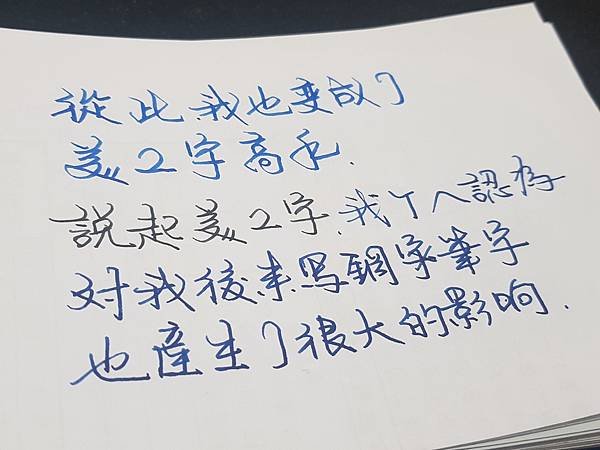 從此我也变成了
美工字高手.
說起美工字.我个人認為
对我後来写鋼字筆字
也產生了很大的影响.